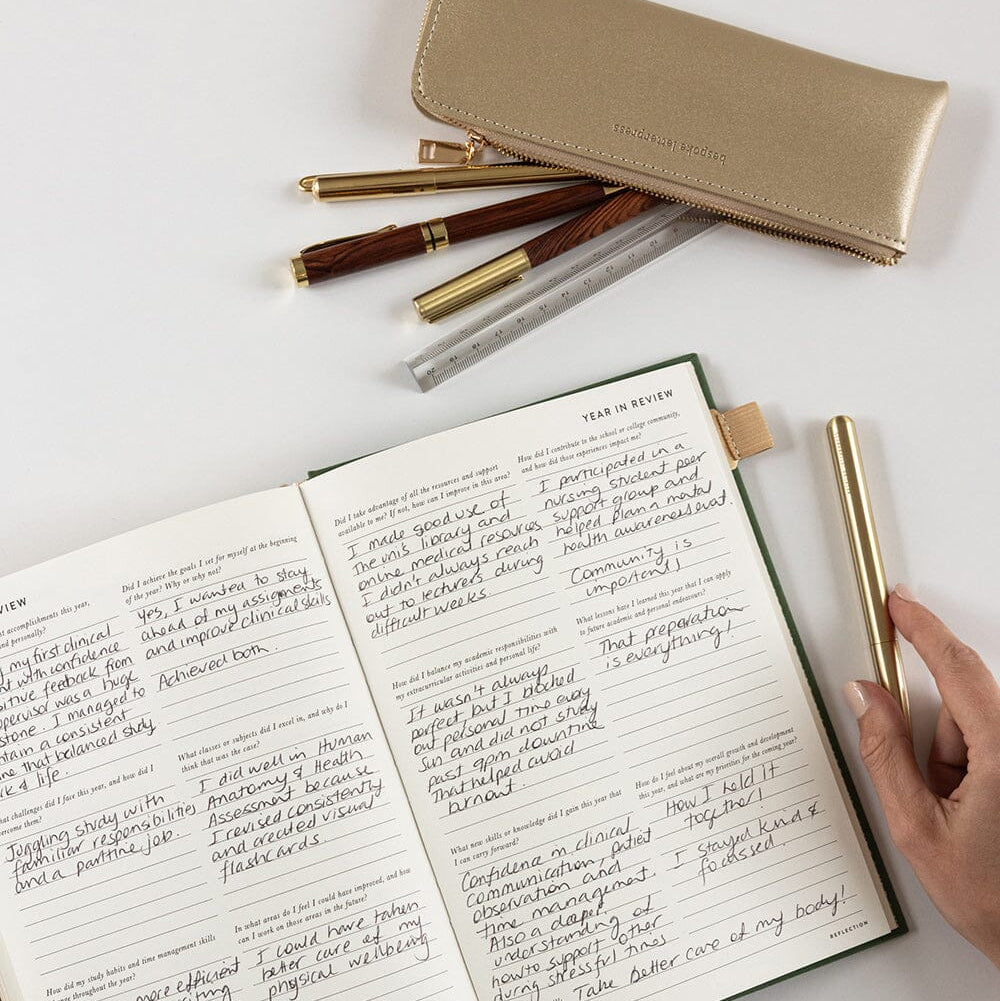 bespoke letterpress
20 19 18 17 16 15 14 13 12 11
VIEW
at accomplishments this year,
and personally?
my first clinical
with confidence
itive feedback from
pervisor was a huge
stone. I managed to
ntain a consistent
ne that balanced study
& life.
hat challenges did I face this year, and how did I
vercome them?
Juggling study with
familiar responsibilities
and a parttime job.
How did my study habits and time management skills
throughout the year?
more efficient
Did I achieve the goals I set for myself at the beginning
of the year? Why or why not?
Yes, I wanted to stay
ahead of my assignments
and improve clinical skills
Achieved both.
What classes or subjects did I excel in, and why do I
think that was the case?
I did well in Human
Anatomy & Health
Assessment because
I revised consistently
and created visual
flashcards.
In what areas do I feel I could have improved, and how
can I work on those areas in the future?
I could have taken
better care of my
physical wellbeing
YEAR IN REVIEW
Did I take advantage of all the resources and support
available to me? If not, how can I improve in this area?
I made good use of
The uni's library and
online medical resources
I didn't always reach
out to lecturers during
difficult weeks.
How did I balance my academic responsibilities with
my extracurricular activities and personal life?
It wasn't always
perfect but I blocked
out personal time every
Sun and did not study
past 9pm downtime
That helped avoid
burnout.
What new skills or knowledge did I gain this year that
I can carry forward?
Confidence in clinical
communication, patient
observation and
time management.
Also a deeper
understanding of
how to support other
during stressful times
How did I contribute to the school or college community,
and how did those experiences impact me?
I participated in a
nursing student peer
support group and
helped plan a mental
health awareness evat.
Community is
important!
What lessons have I learned this year that I can apply
to future academic and personal endeavours?
That preparation
is everything!
How do I feel about my overall growth and development
this year, and what are my priorities for the coming year?
How I held it
together!
I stayed kind &
focussed.
Take better care of my body!
REFLECTION